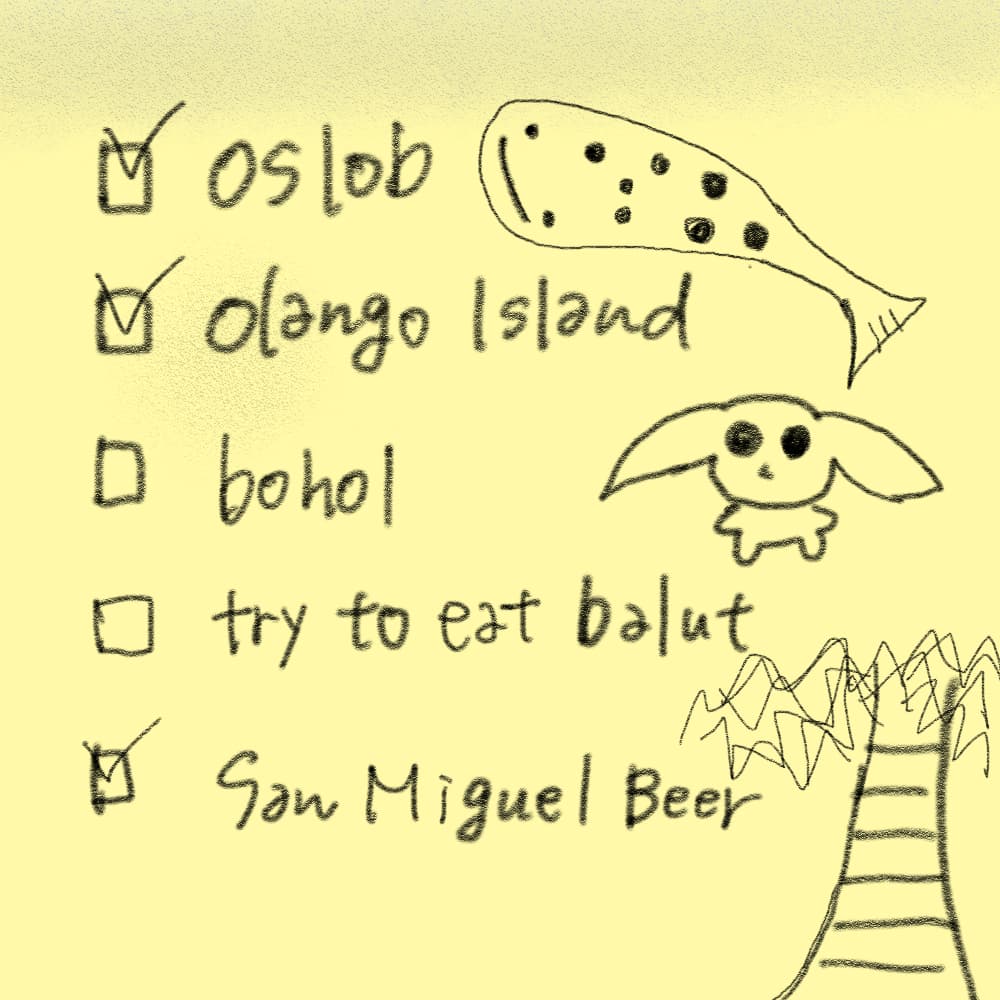 oslob
olango Island
bohol
try to eat balut
San Miguel Beer